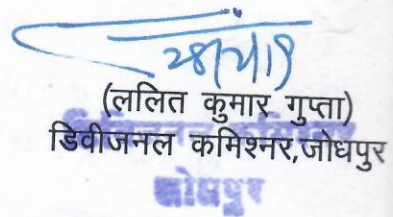 (ललित कुमार गुप्ता)
डिवीजनल कमिश्नर,जोधपुर
जोधपुर